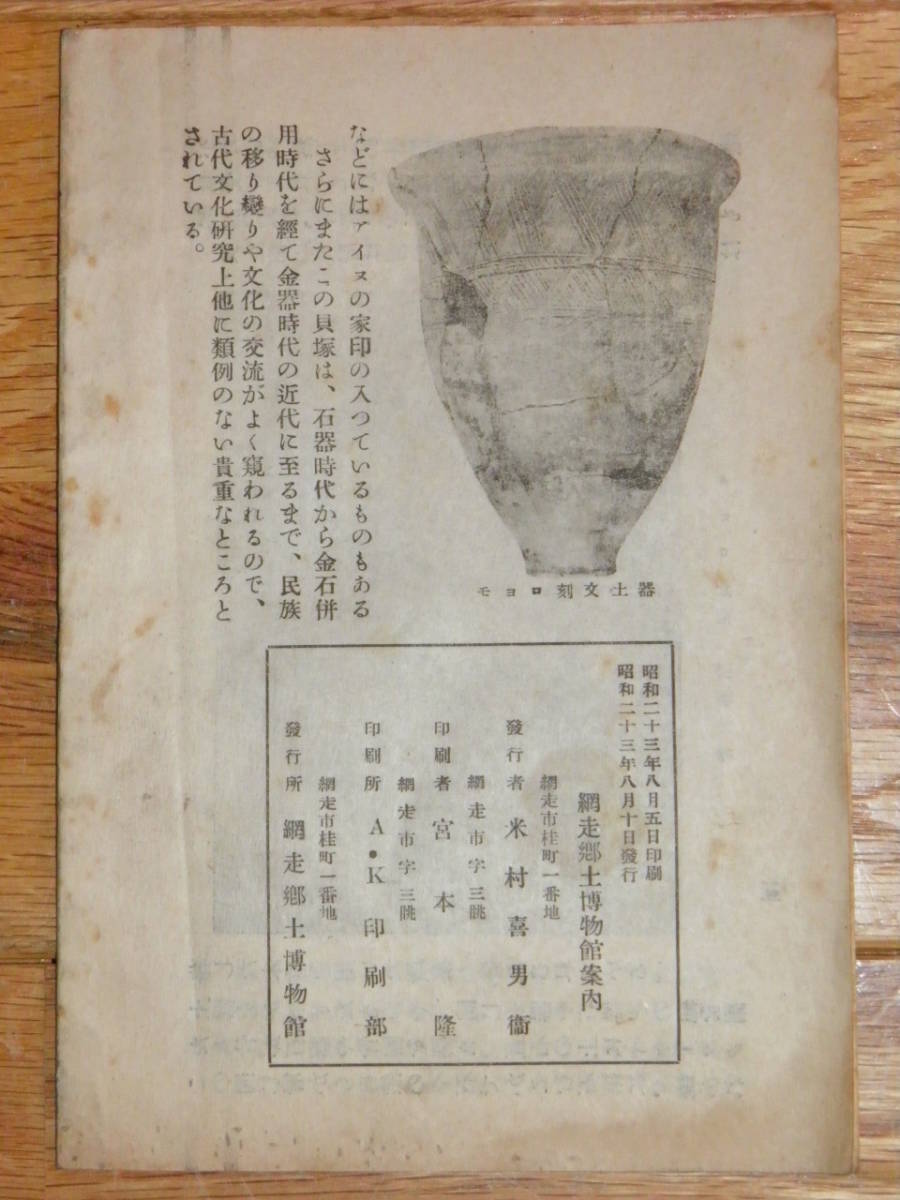 などにはアイヌの家印の入つているものもある
さらにまたこの貝塚は、石器時代から金石併
用時代を經て金器時代の近代に至るまで、民族
の移り變りや文化の交流がよく窺われるので、
古代文化研究上他に類例のない貴重なところと
されている。
モヨロ刻文土器
昭和二十三年八月五日印刷
昭和二十三年八月十日發行
網走鄕土博物館案內
網走市桂町一番地
發行者 米村喜男衞
網走市字三眺
印刷者 宮本隆
網走市字三眺
印刷所 A・K印刷部
網走市桂町一番地
發行所 網走鄕土博物館